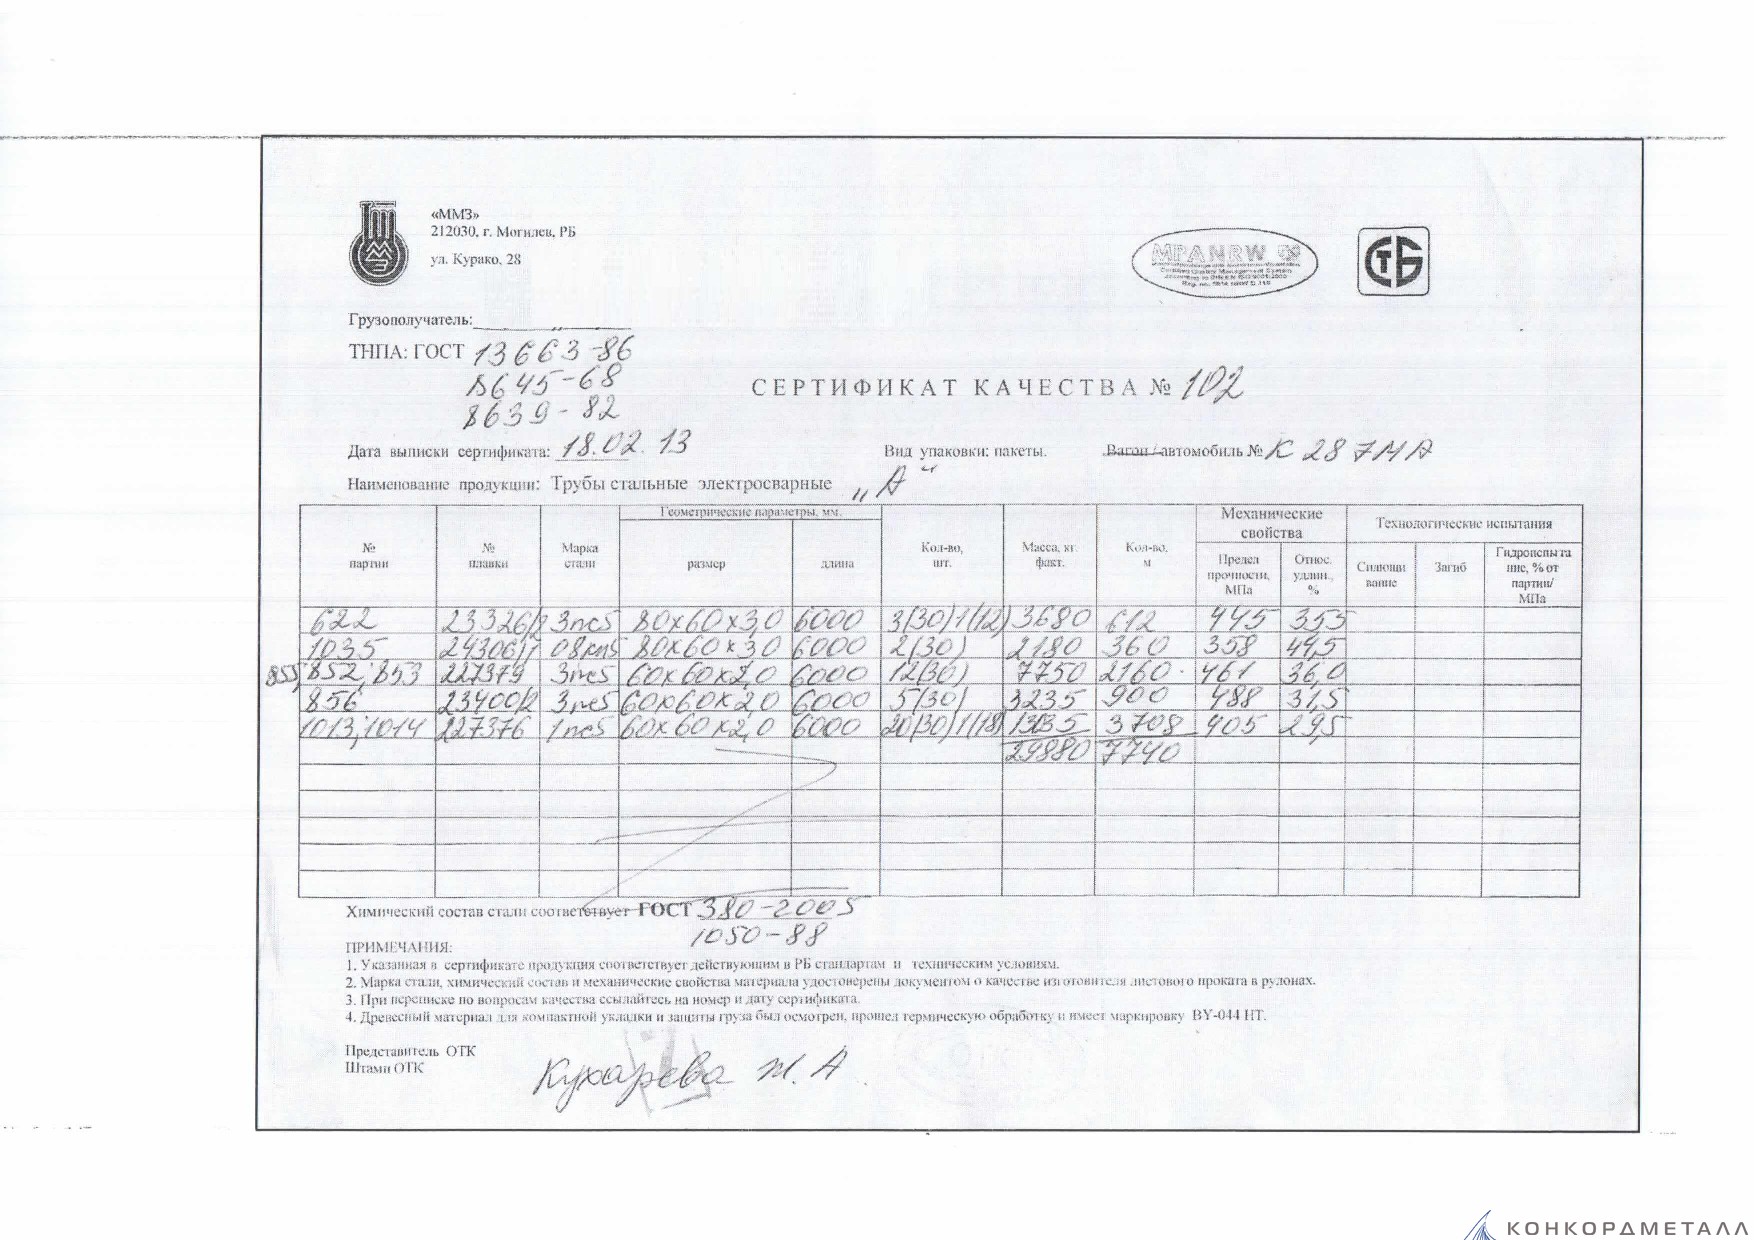 «ММЗ»
212030, г. Могилев, РБ
ул. Курако, 28
MPANRW
СТБ
Грузополучатель:
ТНПА: ГОСТ 13663-86
8645-68
8639-82
СЕРТИФИКАТ КАЧЕСТВА № 102
Дата выписки сертификата: 18.02.13 Вид упаковки: пакеты. Вагон/автомобиль № К 287МА
Наименование продукции: Трубы стальные электросварные „А“
№ партии № плавки Марка стали Геометрические параметры, мм. размер длина Кол-во, шт. Масса, кг. факт. Кол-во, м Механические свойства Предел прочности, МПа Относ. удлин., % Технологические испытания Сплющивание Загиб Гидроиспытание, % от партии/ МПа
622 23326/2 3пс5 80х60х3,0 6000 3(30)1(12) 3680 612 445 35,5
1035 24306/1 08кп5 80х60х3,0 6000 2(30) 2180 360 358 44,5
855, 852, 853 227379 3пс5 60х60х2,0 6000 12(30) 7750 2160 461 36,0
856 23400/2 3пс5 60х60х2,0 6000 5(30) 3235 900 488 31,5
1013, 1014 227376 1пс5 60х60х2,0 6000 20(30)1(18) 3708 405 29,5
29880 7740
Химический состав стали соответствует ГОСТ 380-2005
1050-88
ПРИМЕЧАНИЯ:
1. Указанная в сертификате продукция соответствует действующим в РБ стандартам и техническим условиям.
2. Марка стали, химический состав и механические свойства материала удостоверены документом о качестве изготовителя листового проката в рулонах.
3. При переписке по вопросам качества ссылайтесь на номер и дату сертификата.
4. Древесный материал для компактной укладки и защиты груза был осмотрен, прошел термическую обработку и имеет маркировку BY-044 НТ.
Представитель ОТК
Штамп ОТК
Кухарева Ж. А
КОНКОРДМЕТАЛЛ